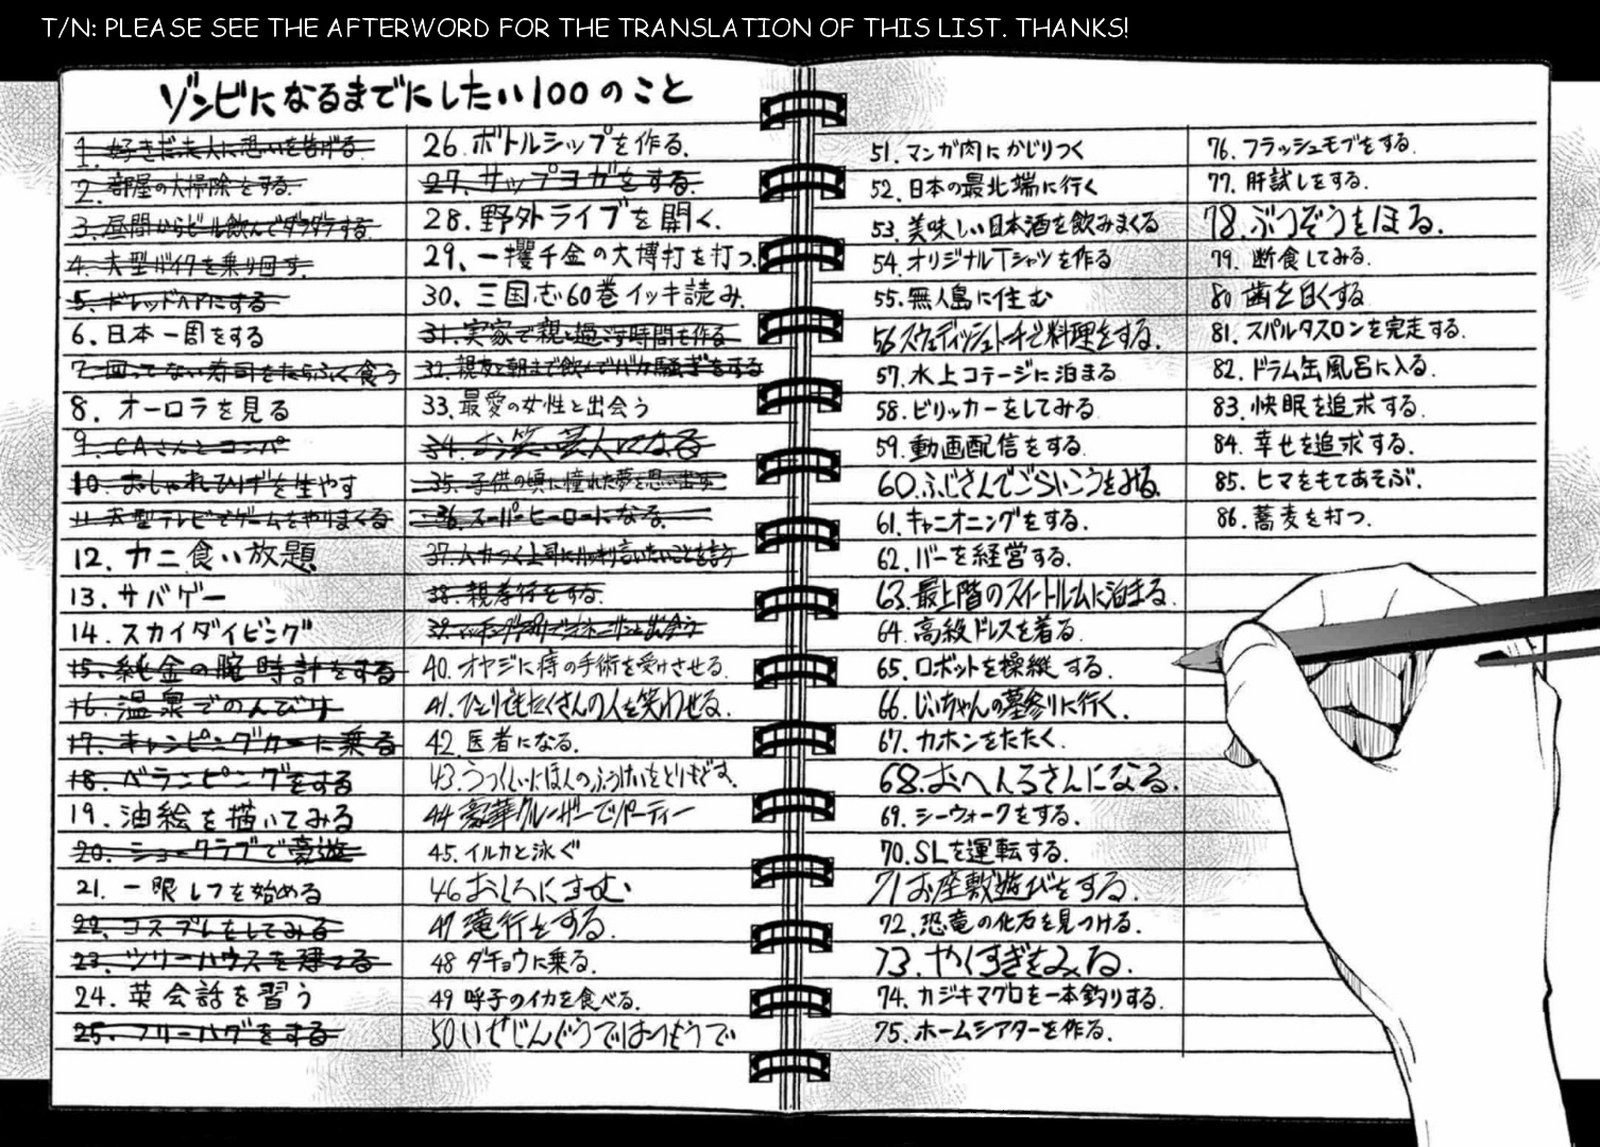 T/N: PLEASE SEE THE AFTERWORD FOR THE TRANSLATION OF THIS LIST. THANKS!
ゾンビになるまでにしたい100のこと
1. 好きだった人に想いを告げる
2. 部屋の大掃除をする.
3. 昼間からビール飲んでダラダラする
4. 大型バイクを乗り回す
5. ドレッドヘアにする
6. 日本一周をする
7. 回ってない寿司をたらふく食う
8. オーロラを見る
9. CAさんとコンパ
10. おしゃれひげを生やす
11. 大型テレビでゲームをやりまくる
12. カニ食い放題
13. サバゲー
14. スカイダイビング
15. 純金の腕時計をする
16. 温泉でのんびり
17. キャンピングカーに乗る
18. ベランピングをする
19. 油絵を描いてみる
20. ショークラブで豪遊
21. 一眼レフを始める
22. コスプレをしてみる
23. ツリーハウスを建てる
24. 英会話を習う
25. フリーハグをする
26. ボトルシップを作る.
27. サップヨガをする.
28. 野外ライブを開く.
29. 一攫千金の大博打を打つ.
30. 三国志60巻イッキ読み.
31. 実家で親と過ごす時間を作る
32. 親友と朝まで飲んでバカ騒ぎをする
33. 最愛の女性と出会う
34. お笑い芸人になる
35. 子供の頃に憧れた夢を思い出す
36. スーパーヒーローになる.
37. ムカつく上司にハッキリ言いたいことを言う
38. 親孝行をする.
39. マッチングアプリで
40. オヤジに痔の手術を受けさせる.
41. ひとりでもたくさんの人を笑わせる.
42. 医者になる.
43. うつくしいにほんのふうけいをとりもどす.
44 豪華クルーザーでパーティー
45. イルカと泳ぐ
46 おしろにすむ
47 滝行をする.
48 ダチョウに乗る.
49 呼子のイカを食べる.
50 いせじんぐうではつもうで
51. マンガ肉にかじりつく
52. 日本の最北端に行く
53. 美味しい日本酒を飲みまくる
54. オリジナルTシャツを作る
55. 無人島に住む
56 スウェディッシュトーチで料理をする.
57. 水上コテージに泊まる
58. ビリッカーをしてみる
59. 動画配信をする.
60. ふじさんでごらいこうをみる.
61. キャニオニングをする.
62. バーを経営する.
63. 最上階のスイートルームに泊まる.
64. 高級ドレスを着る.
65. ロボットを操縦する.
66. じいちゃんの墓参りに行く.
67. カホンをたたく.
68. おへんろさんになる.
69. シーウォークをする.
70. SLを運転する.
71 お座敷遊びをする.
72. 恐竜の化石を見つける.
73. やくすぎをみる.
74. カジキマグロを一本釣りする.
75. ホームシアターを作る.
76. フラッシュモブをする.
77. 肝試しをする.
78. ぶつぞうをほる.
79. 断食してみる.
80 歯を白くする
81. スパルタスロンを完走する.
82. ドラム缶風呂に入る.
83. 快眠を追求する.
84. 幸せを追求する.
85. ヒマをもてあそぶ.
86. 蕎麦を打つ.